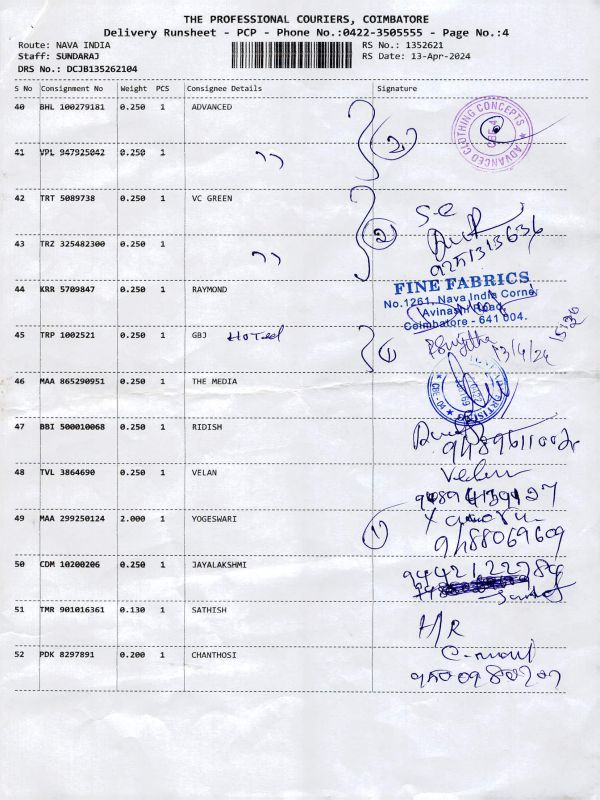 THE PROFESSIONAL COURIERS, COIMBATORE
Delivery Runsheet - PCP - Phone No.:0422-3505555 - Page No.:4
Route: NAVA INDIA RS No.: 1352621
Staff: SUNDARAJ RS Date: 13-Apr-2024
DRS No.: DCJB135262104
S No Consignment No Weight PCS Consignee Details Signature
40 BHL 100279181 0.250 1 ADVANCED
ADVANCED CLOTHING CONCEPTS
41 VPL 947925042 0.250 1 ,,
42 TRT 5089738 0.250 1 VC GREEN
43 TRZ 325482300 0.250 1 ,,
44 KRR 5709847 0.250 1 RAYMOND
FINE FABRICS
No.1261, Nava India Corner
Avinashi Road,
Coimbatore - 641 004.
45 TRP 1002521 0.250 1 GBJ HOTEL 13/4/24
46 MAA 865290951 0.250 1 THE MEDIA
47 BBI 500010068 0.250 1 RIDISH
48 TVL 3864690 0.250 1 VELAN Velan
49 MAA 299250124 2.000 1 YOGESWARI
9488069609
50 CDM 10200206 0.250 1 JAYALAKSHMI
51 TMR 901016361 0.130 1 SATHISH H/R
52 PDK 8297891 0.200 1 CHANTHOSI